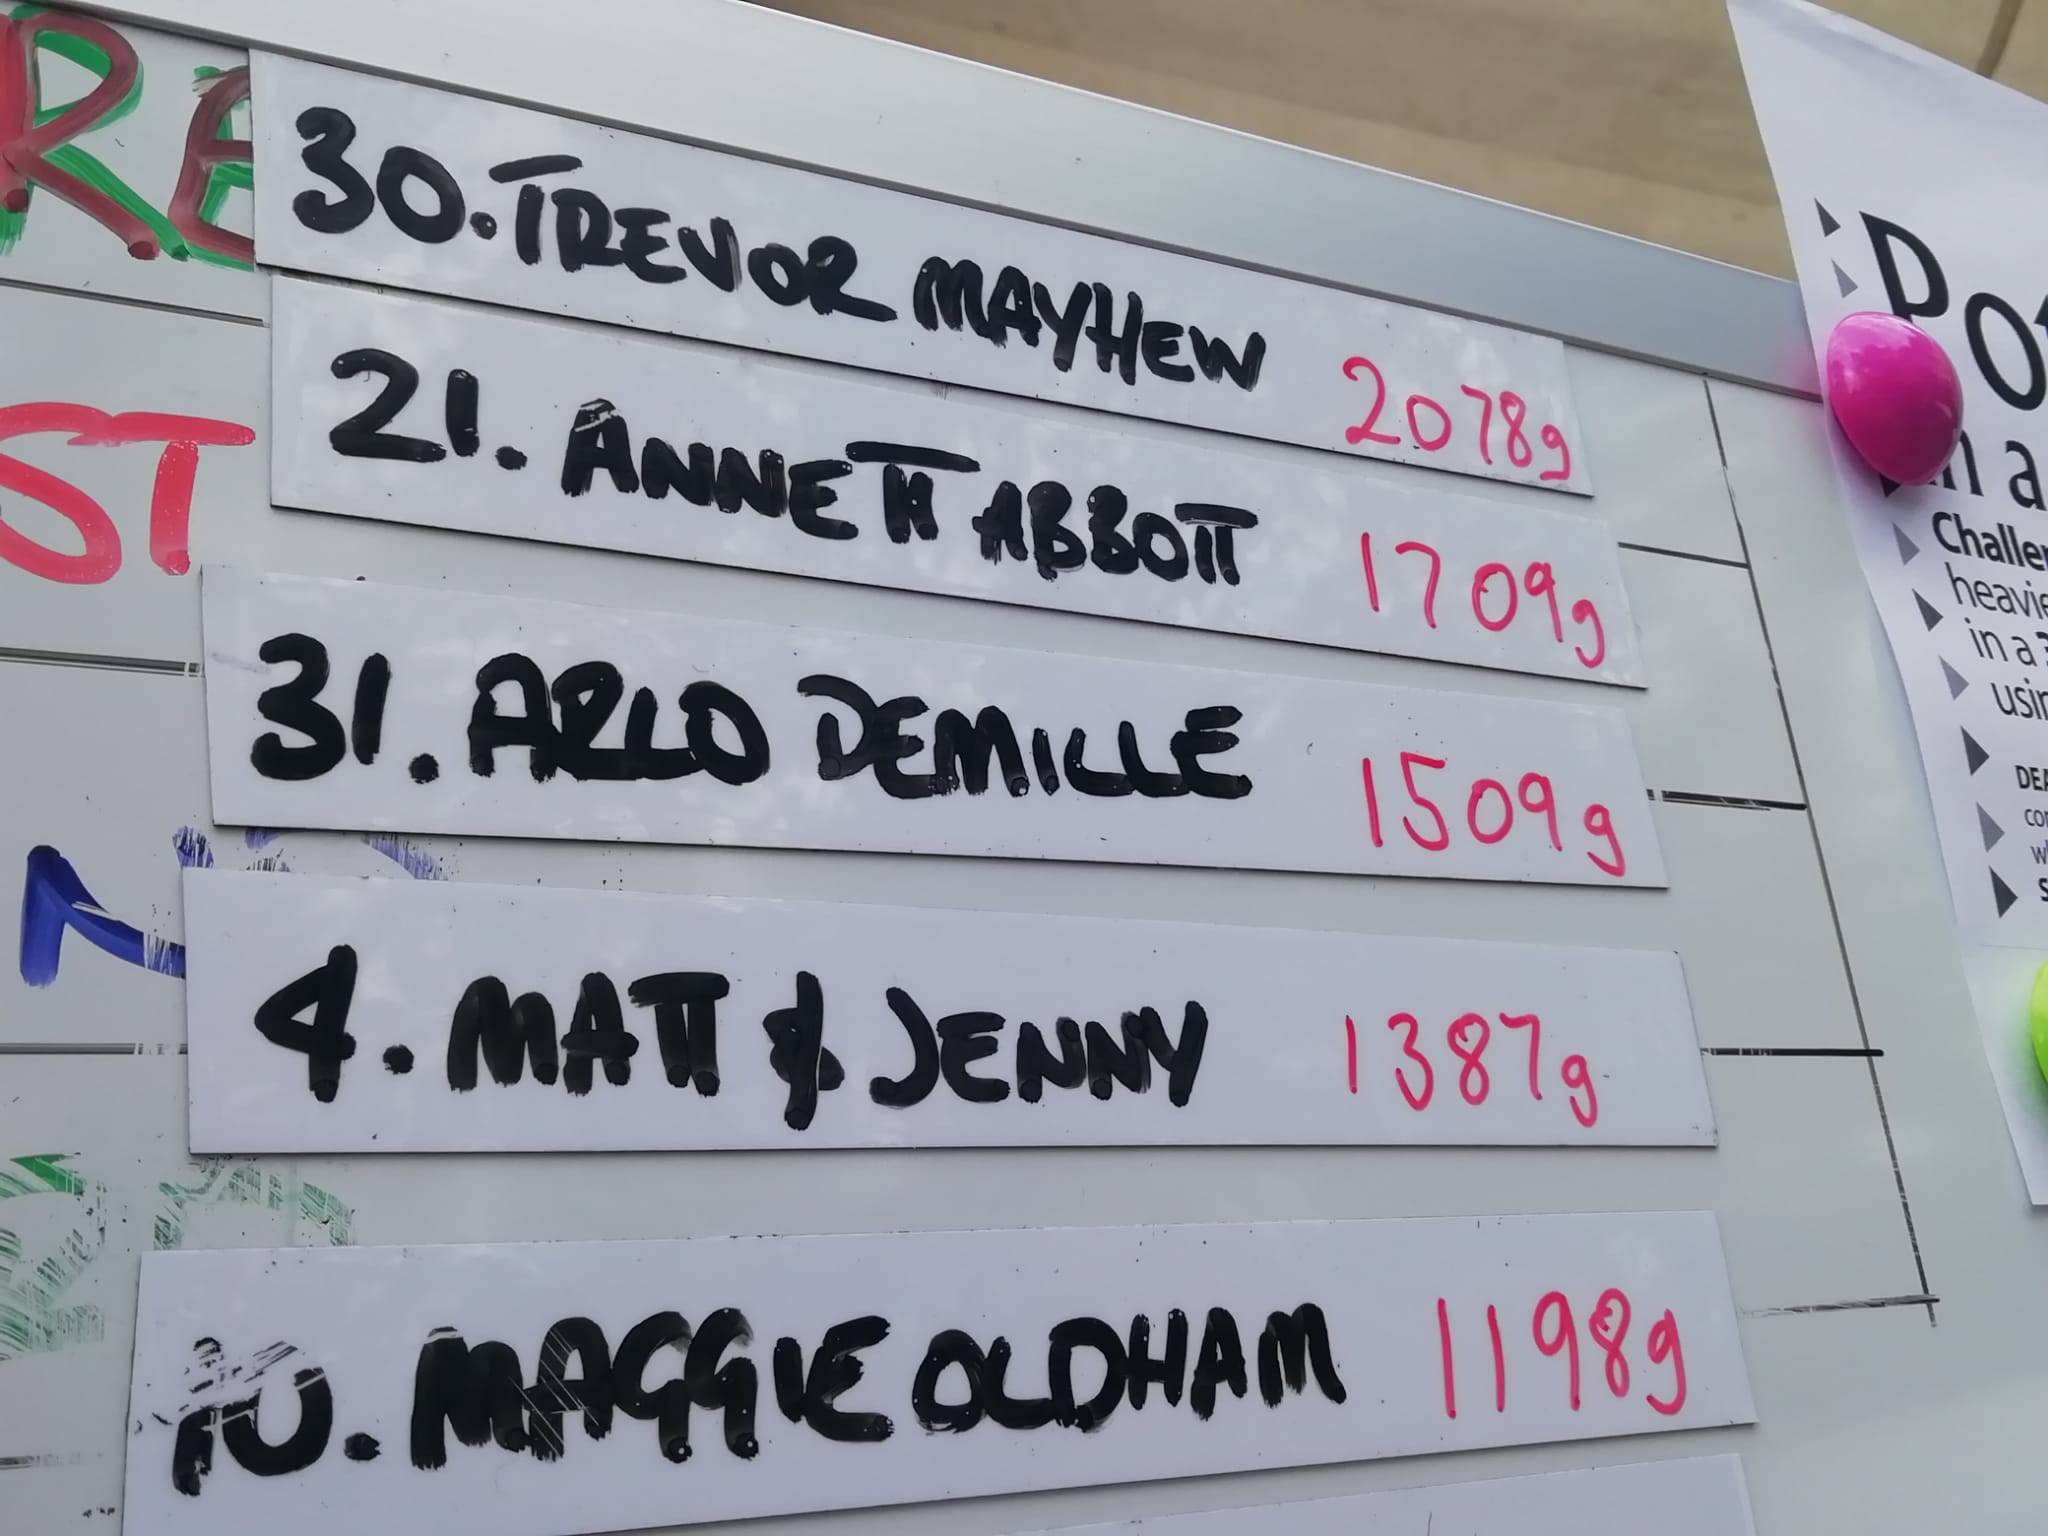 30. TREVOR MAYHEW 2078g
21. ANNETT ABBOTT 1709g
31. ARLO DEMILLE 1509g
4. MATT & JENNY 1387g
10. MAGGIE OLDHAM 1198g
RE
ST
N
Pot
in a
Challen
heavie
in a
usin
DEA
con
w
S